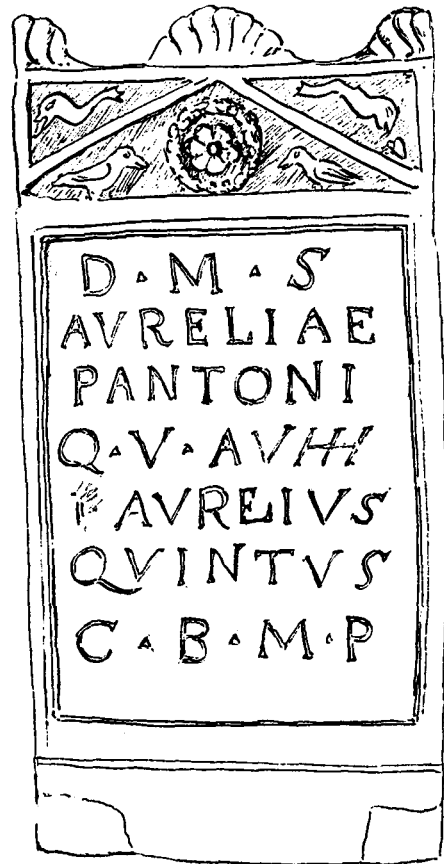 D · M · S
AVRELIAE
PANTONI
Q · V ·
AVRELIVS
QVINTVS
C · B · M · P